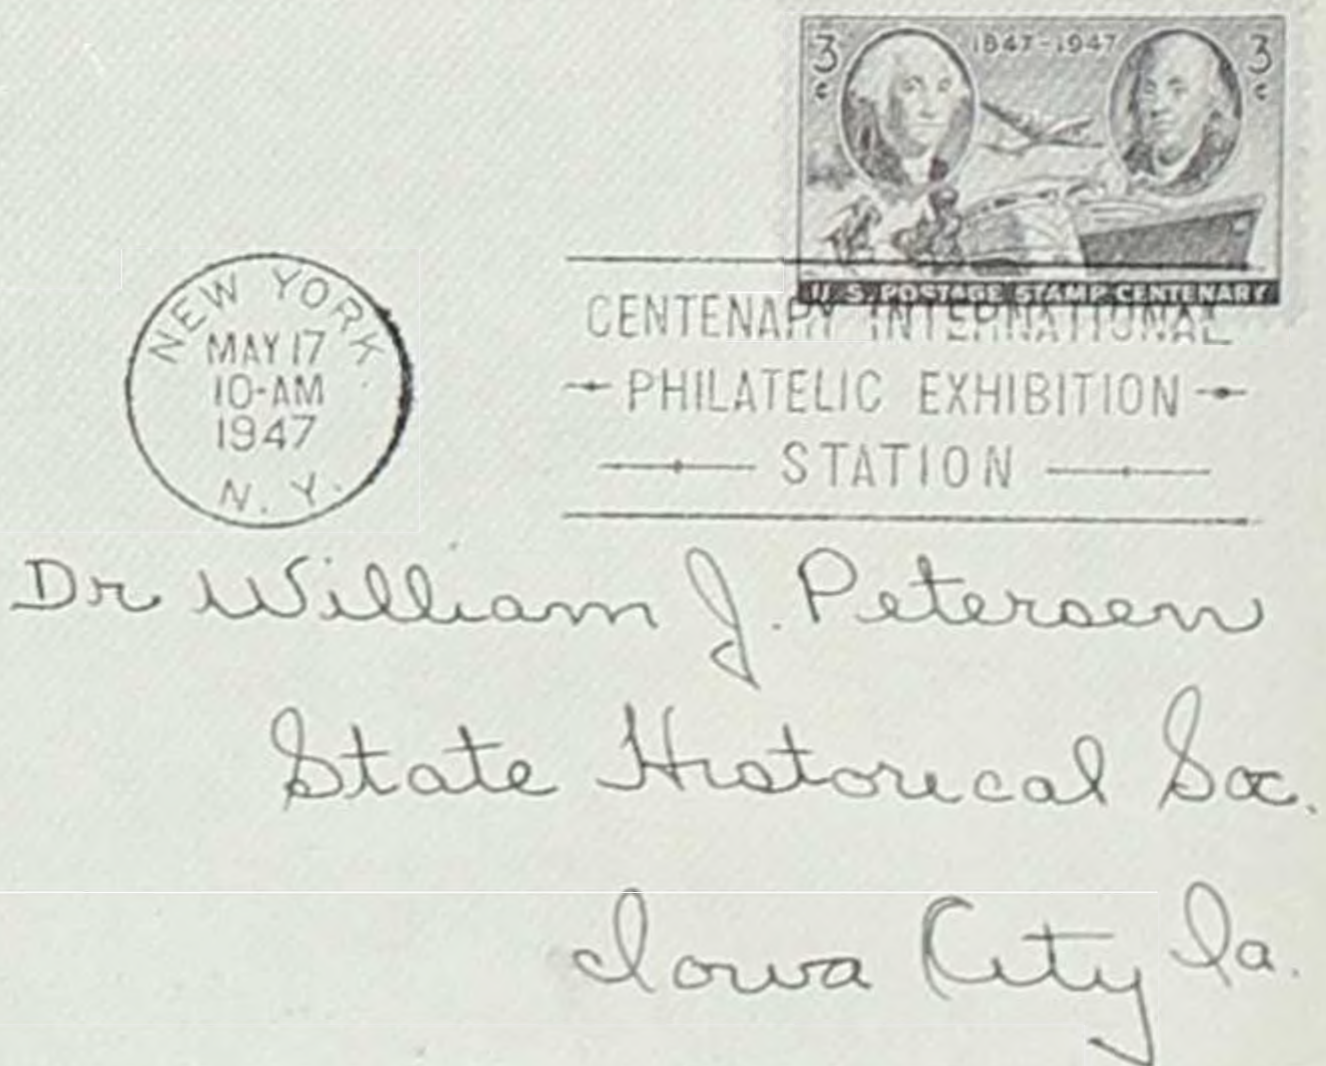 3¢ 1847-1947 3¢
U.S. POSTAGE STAMP CENTENARY
NEW YORK
MAY 17
10-AM
1947
N. Y.
CENTENARY INTERNATIONAL
PHILATELIC EXHIBITION
STATION
Dr William J. Petersen
State Historical Soc.
Iowa City Ia.